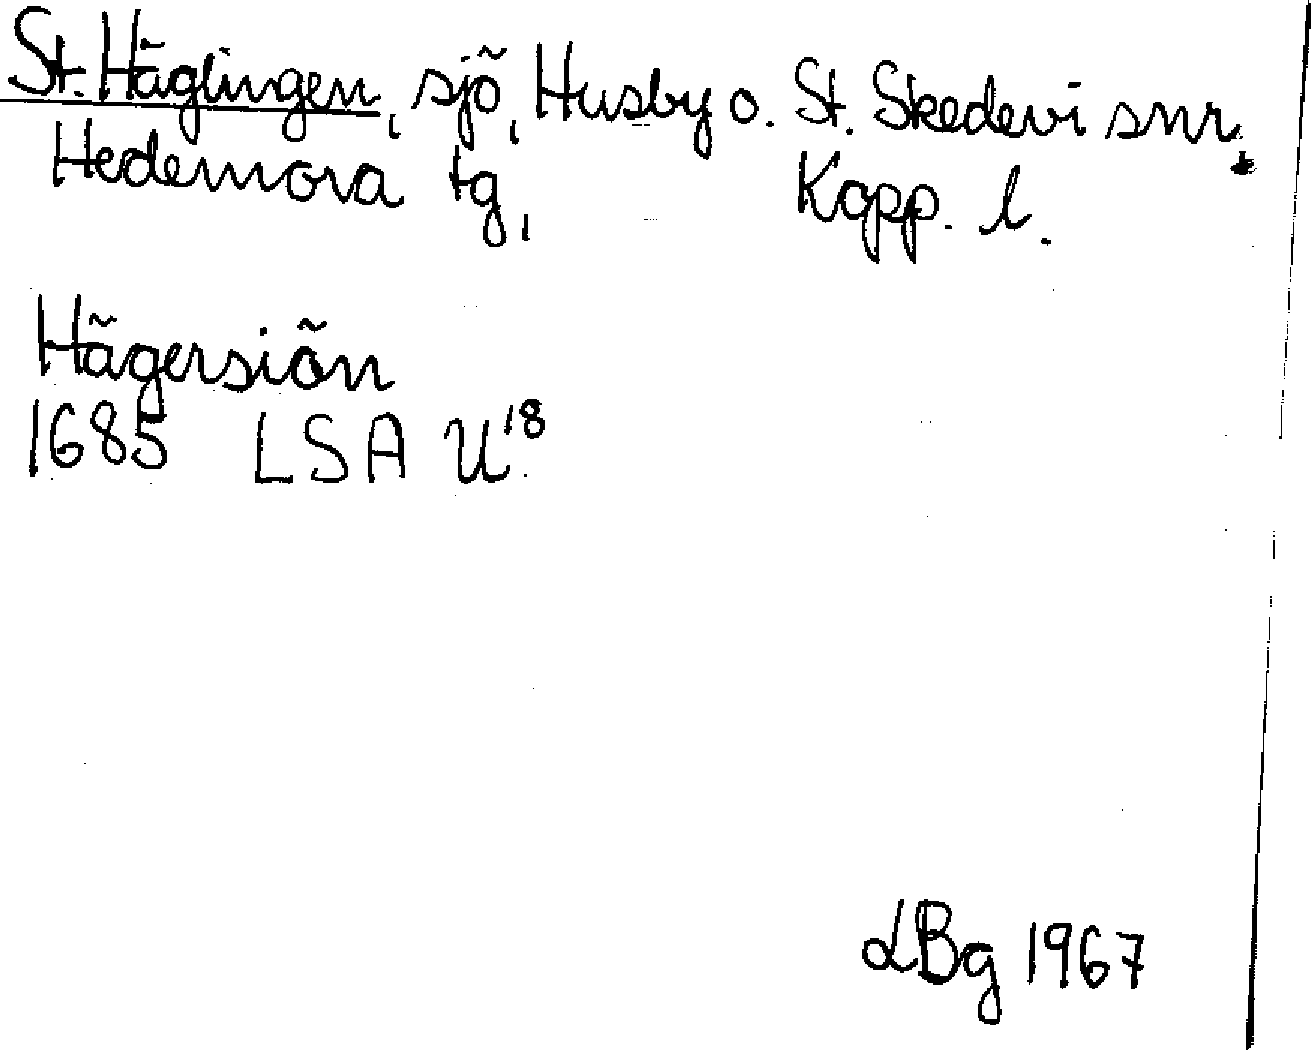 St. Häglingen, sjö, Husby o. St. Skedevi snr,
Hedemora tg, Kopp. l.
Hägersiön
1685 LSA U18
LBg 1967